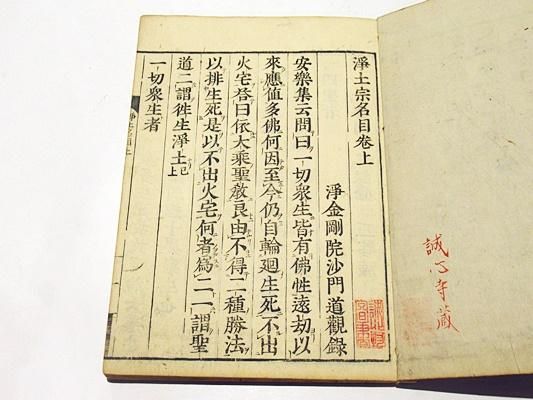 淨土宗名目卷上
淨金剛院沙門道觀錄
安樂集云問曰一切衆生皆有佛性遠劫以
來應值多佛何因至今仍自輪廻生死不出
火宅荅曰依大乘聖教良由不得二種勝法
以排生死是以不出火宅何者為二一謂聖
道二謂徃生淨土已上
一切衆生者
誠心寺蔵